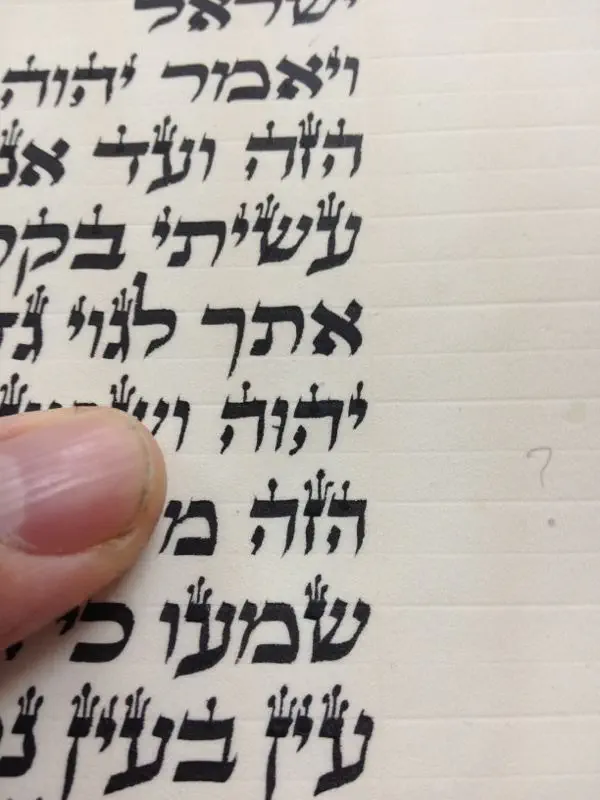 ישראל
ויאמר יהוה
הזה ועד
עשיתי
אתך לגוי
יהוה
הזה
?
שמעו כי
עין בעין